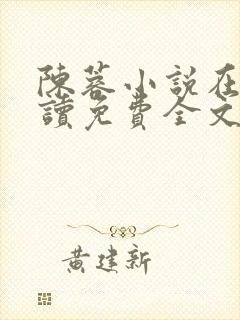 陳蓉小說在
讀免費全文
黄建新